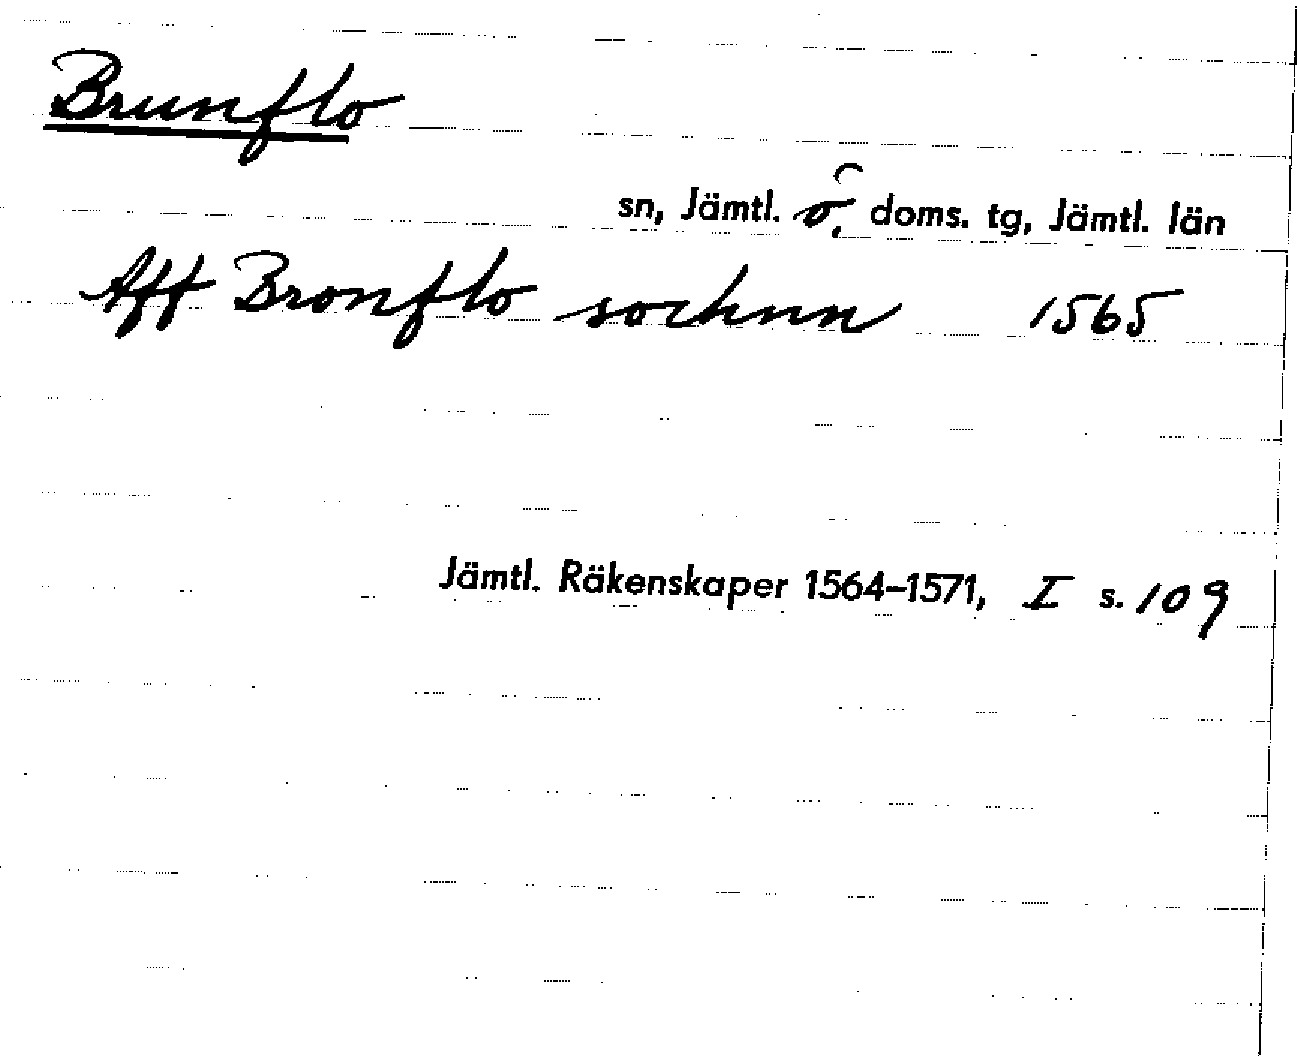 Brunflo
sn, Jämtl. ö. doms. tg, Jämtl. län
Aff Bronflo sochnn 1565
Jämtl. Räkenskaper 1564–1571, I s. 109